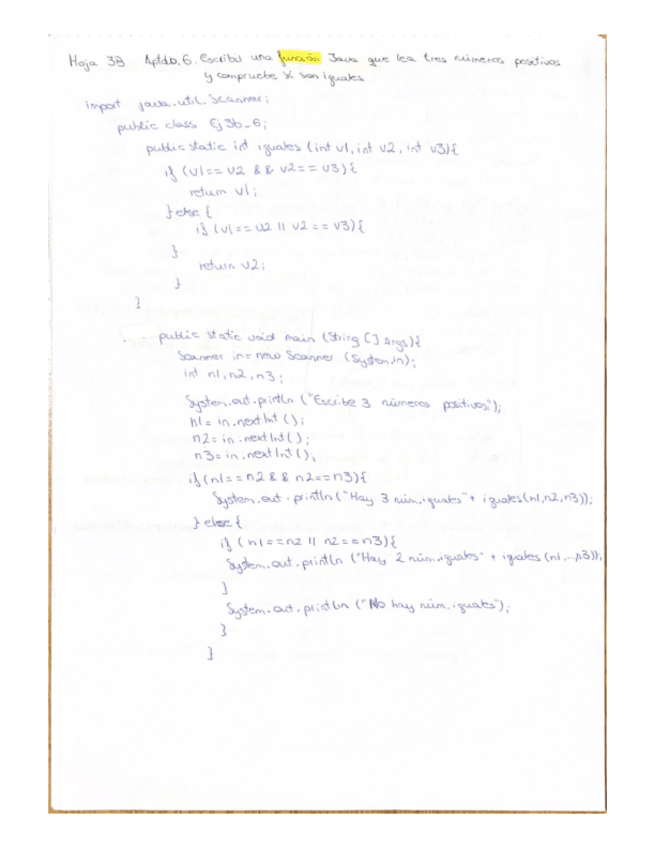 Hoja 3B Aptdo. 6. Escribir una función Java que lea tres números positivos
y compruebe si son iguales
import java.util.Scanner;
public class Ej3b_6;
public static int iguales (int v1, int v2, int v3){
if (v1== v2 && v2== v3){
return v1;
} else {
if (v1 == v2 || v2 == v3){
}
return v2;
}
}
public static void main (String [] Args){
Scanner in = new Scanner (System.in);
int n1, n2, n3;
System.out.println ("Escribe 3 números positivos:");
n1 = in.nextInt ();
n2 = in.nextInt ();
n3 = in.nextInt ();
if (n1 == n2 && n2==n3){
System.out.println ("Hay 3 núm. iguales" + iguales(n1,n2,n3));
} else {
if ( n1 ==n2 || n2 == n3){
System.out.println ("Hay 2 núm. iguales" + iguales (n1,...,n3));
}
System.out.println ("No hay núm. iguales");
}
}